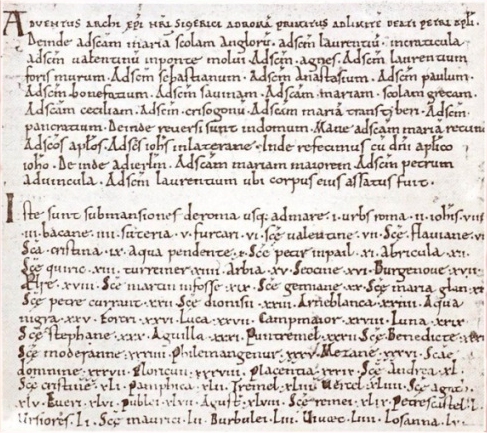 ADVENTUS ARCHI EPI NRI SIGERICI AD ROMA PRIMITUS AD LIMITE BEATI PETRI APLI.
Deinde ad scam maria scolam angloru. ad scm laurentiu. in craticula
ad scm valentinu in ponte molui. Ad scm. agnes. Ad scm laurentium
foris murum. Ad scm sebastianum. Ad scm anastasium. Ad scm paulum.
Ad scm bonefatium. Ad scm sauinam. Ad scam. mariam. scolam grecam.
Ad scam ceciliam. Ad scm. crisogonu. Ad scam mariā transtyberi. Ad scm.
pancratium. Deinde reuersi sunt in domum. Mane ad scam mariā rotundā
Ad scos aplos. Ad scs iohs in laterane. Inde refecimus cu dnı aplico
ioho. Deinde ad ierlm. Ad scam mariam maiorem Ad scm petrum
ad uincula. Ad scm laurentium ubi corpus eius assatus fuit.
Iste sunt submansiones de roma usq; ad mare. i. urbs roma. ii. iohıs. viiii
iii. bacane. iiii. suteria. v. furcari. vi. sce ualentine. vii. Sce flauiane. vi
Sca cristina. ix. Aqua pendente. x. Sce petir in pail. xi. Abricula. xii.
Sce quiric. xiii. turreiner. xiiii. Arbia. xv. Seocine. xvi. Burgenoue. xvii.
Ælse. xviii. Sce martin in fosse. xix. Sce gemiane. xx. Sce maria glan. xx
Sce petre currant. xxii. Sce dionisii. xxiii. Arneblanca. xxiiii. Aqua
nigra. xxv. Forcri. xxvi. Luca. xxvii. Campmaior. xxviii. Luna. xxix
Sce stephane. xxx. Aguilla. xxxi. Puntremel. xxxii. Sce Benedicte. xx
Sce moderanne. xxxiiii. Philemangenur. xxxv. Metane. xxxvi. Sce
domnine. xxxvii. Floricun. xxxviii. Placentia. xxxix. Sce andrea. xl.
Sce cristine. xli. Pamphica. xlii. Tremel. xliii. Uercel. xliiii. Sce agath.
xlv. Eueri. xlvi. Publei. xlvii. Agust. xlviii. Sce remei. xlix. Petrescastel. l.
Ursiores. li. Sce maurici. lii. Burbulei. liii. Uiuæc. liiii. Losanna. lv.